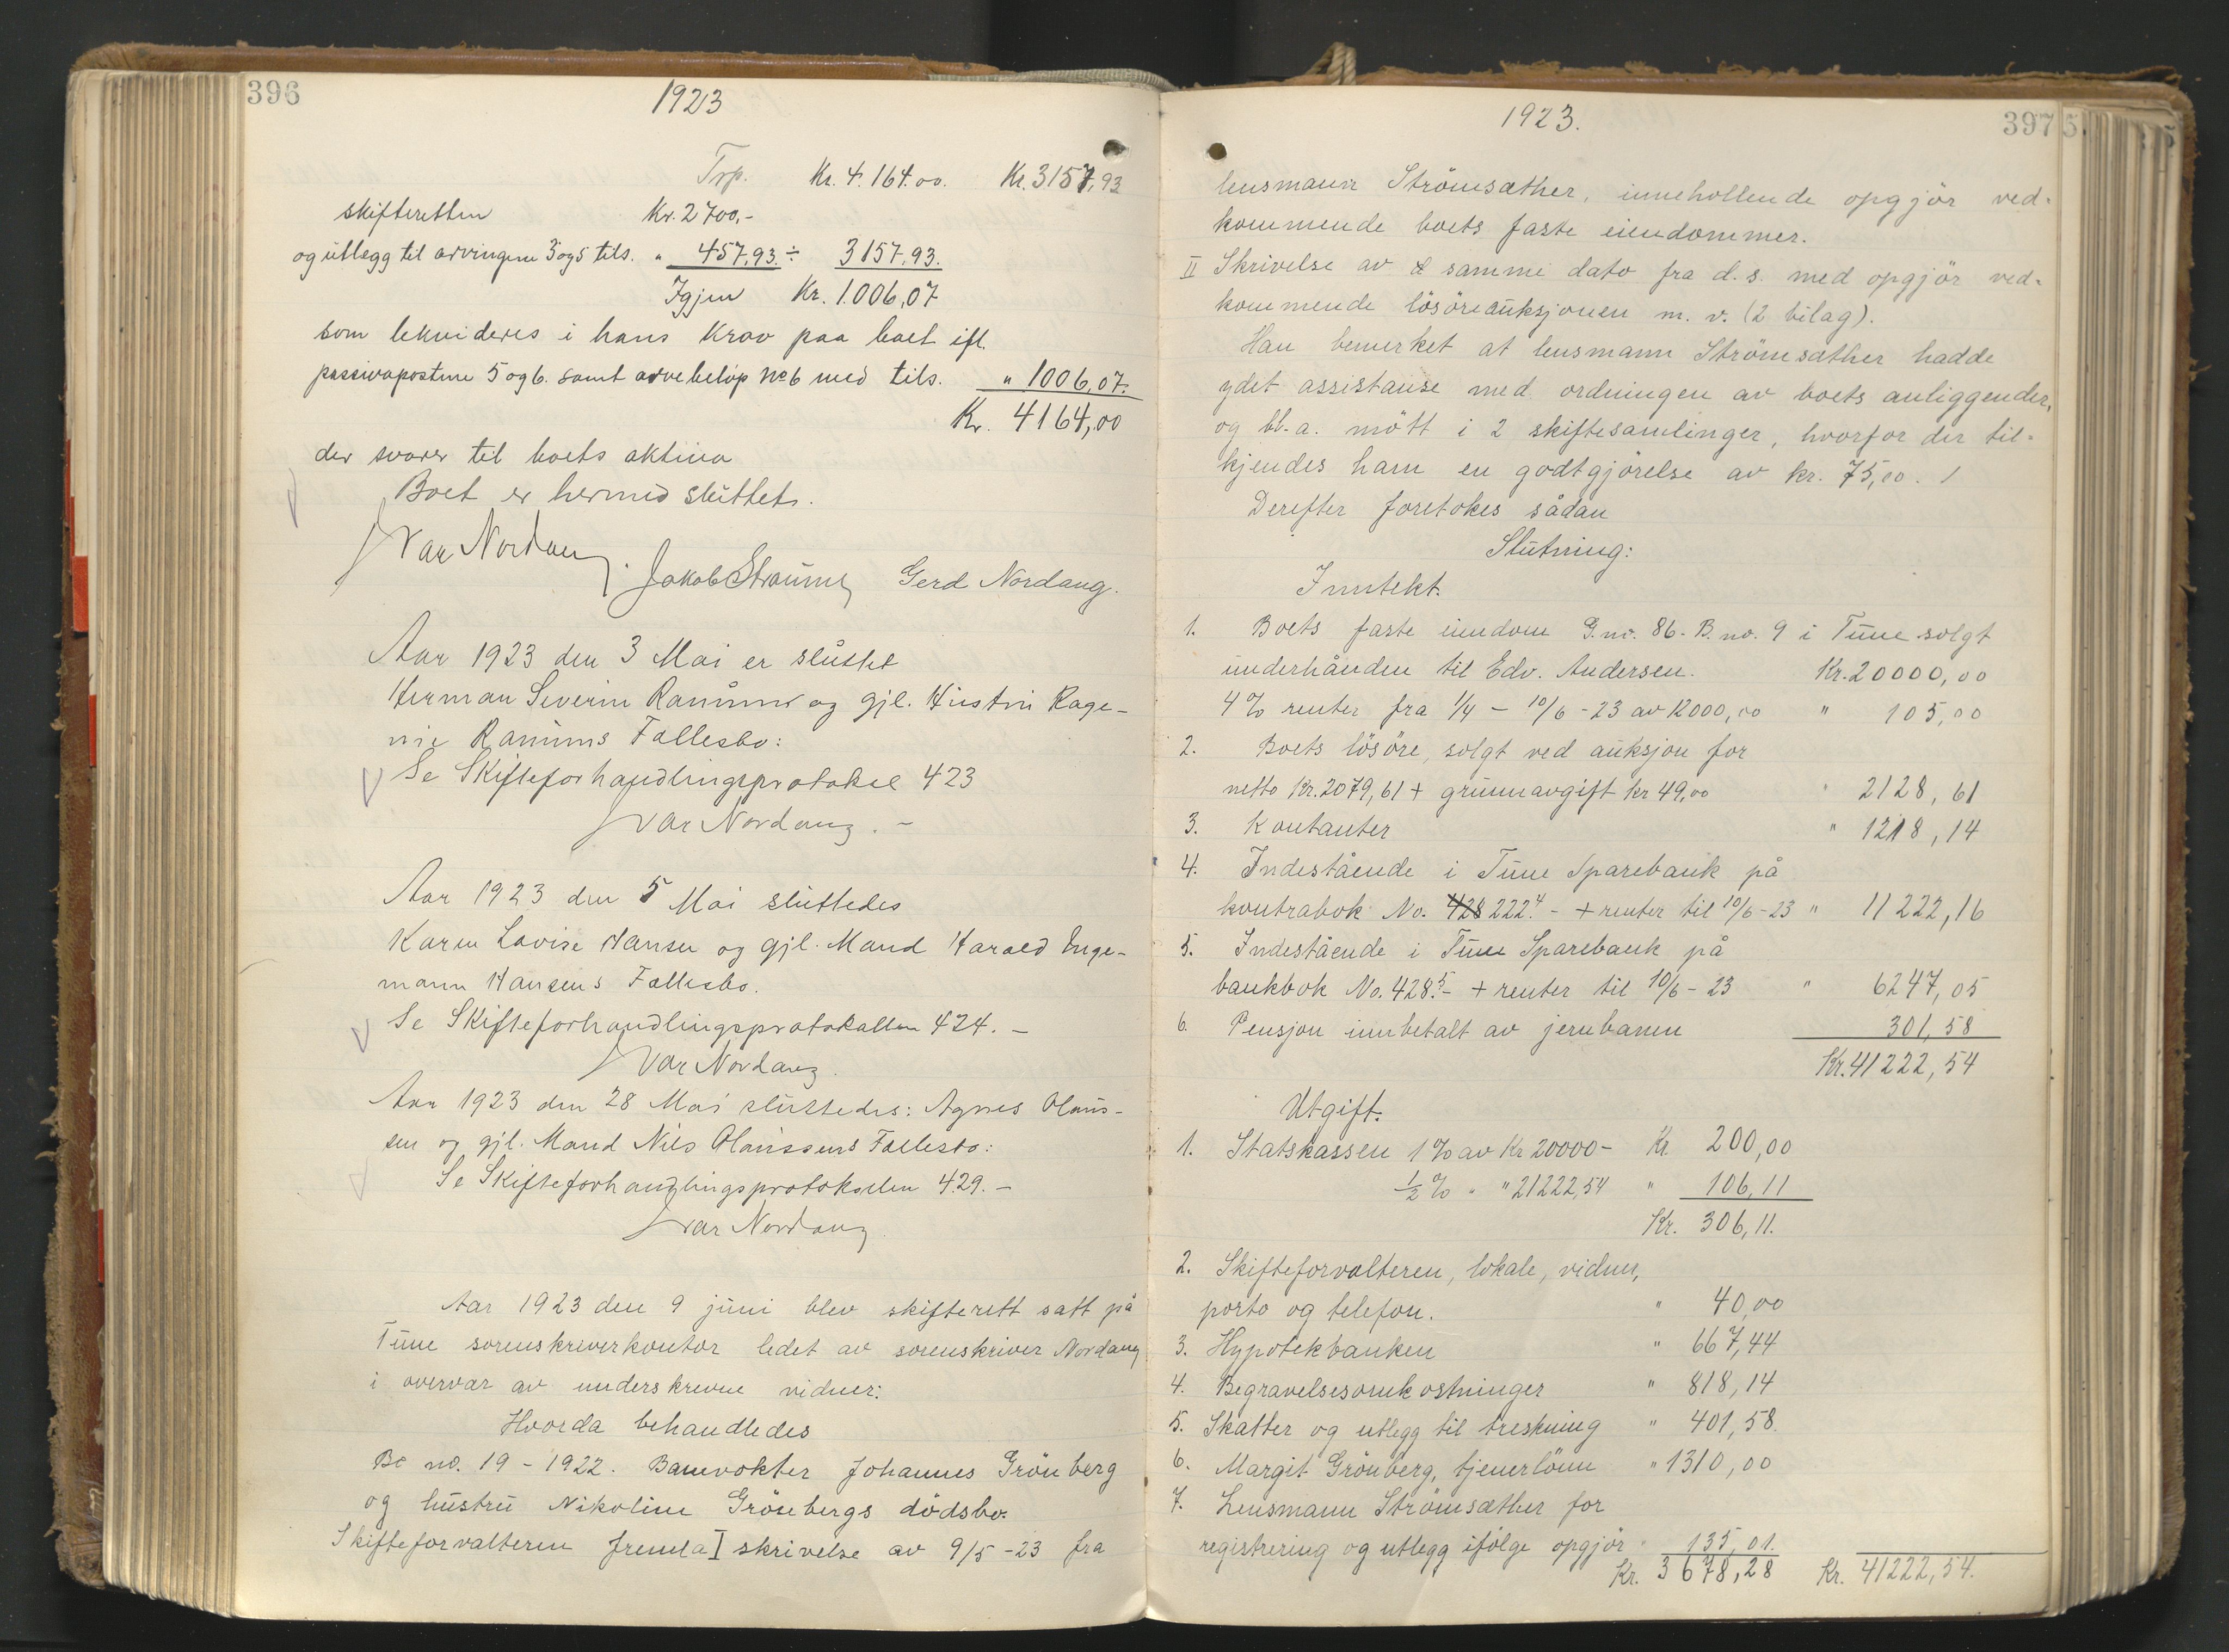 396
1923
Trp. Kr. 4.164.00. Kr. 3157,93
skifteretten Kr. 2700,-
og utlegg til arvingene 3 og 5 tils. " 457,93 ÷ 3157,93.
Igjen Kr. 1.006,07
som lekvideres i hans Krav paa boet ifl.
passivapostene 5 og 6. samt arvebeløp № 6 med tils. " 1006,07.
Kr. 4164,00
der svarer til boets aktiva
Boet er hermed sluttet.
Ivar Nordang. Jakob Straume Gerd Nordang.
Aar 1923 den 3 Mai er sluttet
Herman Severin og gjl. Hustru
Fællesbo:
Se Skifteforhandlingsprotokol 423
Ivar Nordang. -
Aar 1923 den 5 Mai sluttedes
Karen Lovise Hansen og gjl. Mand Harald Inge-
mann Hansens Fællesbo.
Se Skifteforhandlingsprotokollen 424. -
Ivar Nordang.
Aar 1923 den 28 Mai sluttedes: Agnes Olaus-
sen og gjl. Mand Nils Olaussens Fællesbo:
Se Skifteforhandlingsprotokollen 429. -
Ivar Nordang
Aar 1923 den 9 juni blev skifterett satt på
Tune sorenskriverkontor ledet av sorenskriver Nordang
i overvær av underskrevne vidner:
Hvorda behandledes
Bo no. 19 - 1922. Banevokter Johannes Grönberg
og hustru Nikoline Grönbergs dödsbo.
Skifteforvalteren fremla I skrivelse av 9/5 -23 fra
1923.
397
lensmann Strömsæther, inneholdende opgjör ved-
kommende boets faste eiendommer.
II Skrivelse av samme dato fra d. s. med opgjör ved-
kommende lösöreauksjonen m. v. (2 bilag).
Han bemerket at lensmann Strömsæther hadde
ydet assistanse med ordningen av boets anliggender,
og bl. a. mött i 2 skiftesamlinger, hvorfor der til-
kjendes ham en godtgjörelse av kr. 75,00.
Derefter foretokes sådan
Slutning:
Inntekt.
1. Boets faste eiendom G. no. 86 - B. no. 9 i Tune solgt
underhånden til Edv. Andersen. Kr. 20000,00
4 % renter fra 1/4 - 10/6 -23 av 12000,00 " 105,00
2. Boets lösöre, solgt ved auksjon for
netto Kr. 2079,61 + grunnavgift kr 49,00 " 2128,61
3. Kontanter " 1218,14
4. Indestående i Tune Sparebank på
kontrabok No. 428 222.4 - + renter til 10/6 -23 " 11222,16
5. Indestående i Tune Sparebank på
bankbok No. 428.5 - + renter til 10/6 - 23 " 6247,05
6. Pensjon innbetalt av jernbanen 301,58
Kr. 41222,54
Utgift.
1. Statskassen 1 % av Kr 20000- Kr. 200,00
1/2 % " " 21222,54 " 106,11
Kr. 306,11.
2. Skifteforvalteren, lokale, vidner,
porto og telefon. " 40,00
3. Hypotekbanken " 667,44
4. Begravelsesomkostninger " 818,14
5. Skatter og utlegg til treskning " 401,58.
6. Margit Grönberg, tjenerlönn " 1310,00
7. Lensmann Strömsæther for
registrering og utlegg ifölge opgjör " 135,01.
Kr. 3678,28 Kr. 41222,54.